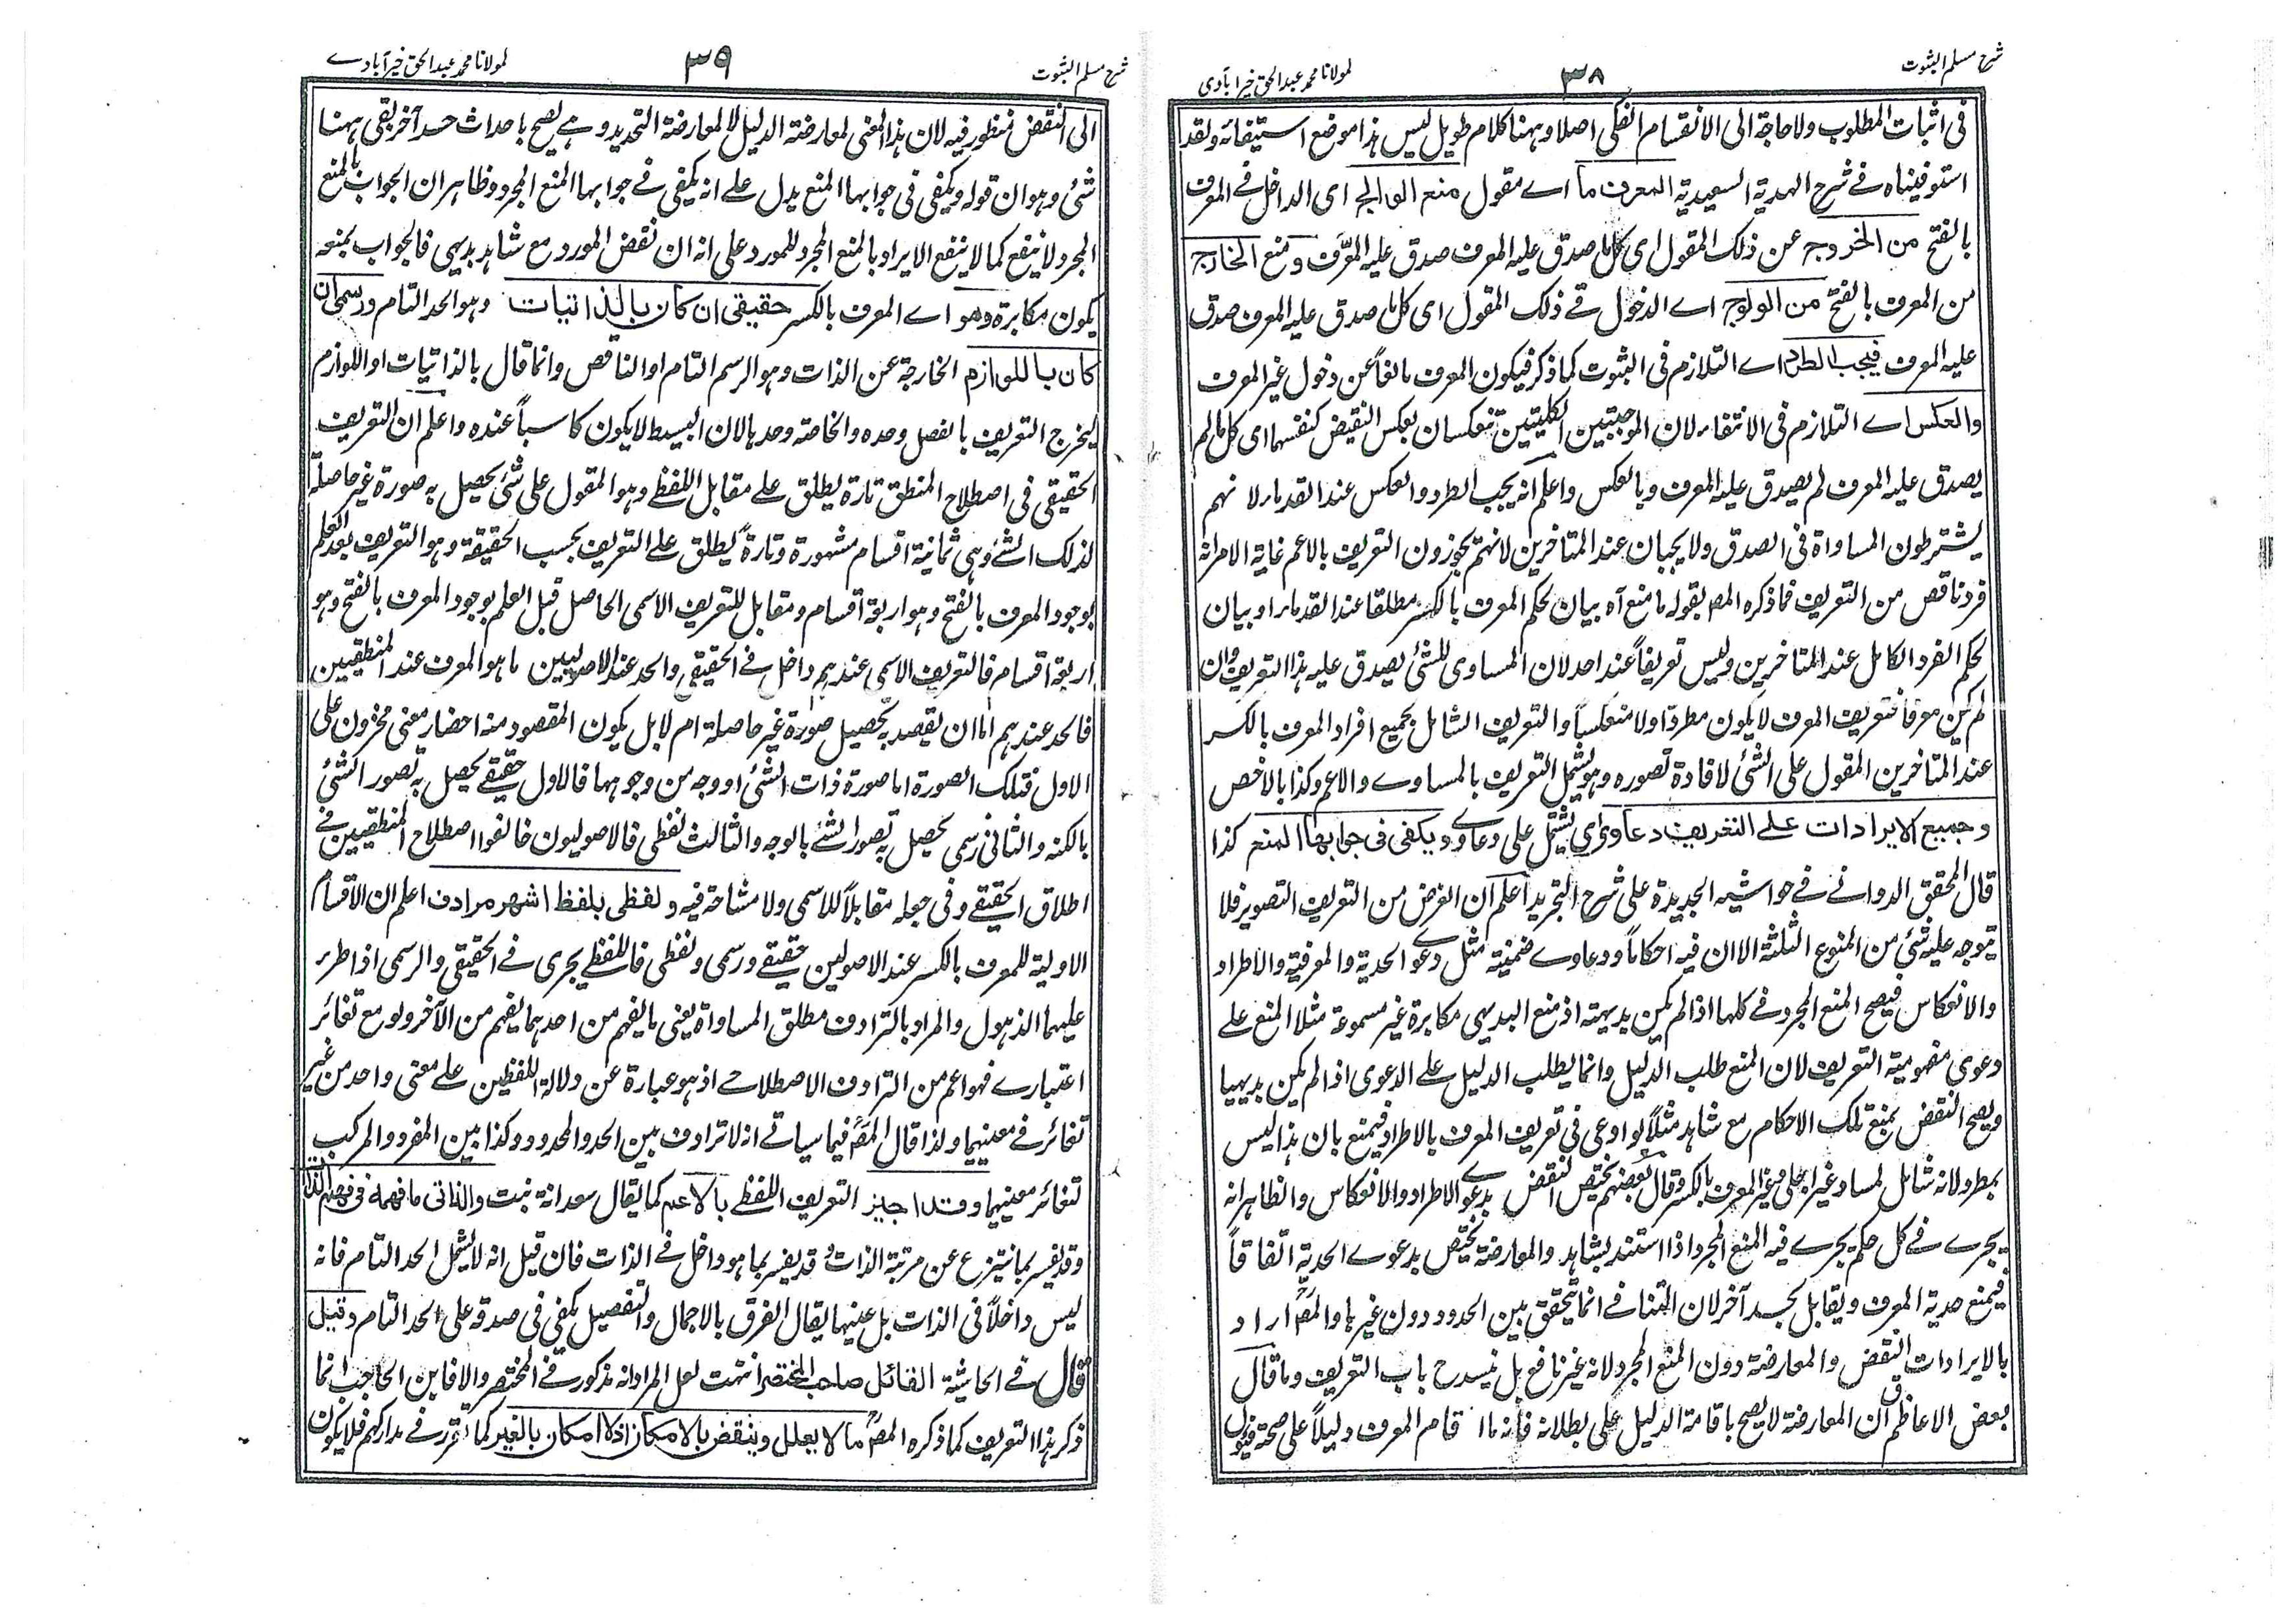 شرح مسلم الثبوت
٣٨
لمولانا محمد عبد الحق خيرآبادى
فى اثبات المطلوب ولا حاجة الى الانقسام الفكى اصلا وههنا كلام طويل ليس هذا موضع استيفائه ولقد
استوفيناه فى شرح الهدية السعيدية المعرف ما اے مقول منع الوالج اى الداخل فى المعرف
بالفتح من الخروج عن ذلك المقول اى كل ما صدق عليه المعرف صدق عليه المعرِّف ومنع الخارج
من المعرف بالفتح من الولوج اے الدخول فى ذلك المقول اى كل ما صدق عليه المعرف صدق
عليه المعرف فيجب الطرد اے التلازم فى الثبوت كما ذكر فيكون المعرف مانعاً عن دخول غير المعرف
والعكس اے التلازم فى الانتفاء لان الموجبتين الكليتين تنعكسان بعكس النقيض كنفسهما اى كل ما لم
يصدق عليه المعرف لم يصدق عليه المعرف وبالعكس واعلم انه يجب الطرد والعكس عند القدماء لانهم
يشترطون المساواة فى الصدق ولا يجبان عند المتاخرين لانهم يجوزون التعريف بالاعم غاية الامر انه
فرد ناقص من التعريف فما ذكره المص بقوله ما منع آه بيان لحكم المعرف بالكسر مطلقا عند القدماء او بيان
لحكم الفرد الكامل عند المتاخرين وليس تعريفاً عند احد لان المساوى للشئ يصدق عليه هذا التعريف وان
لم يكن معرفا فتعريف المعرف لا يكون مطردا ولا منعكساً والتعريف الشامل لجميع افراد المعرف بالكسر
عند المتاخرين المقول على الشئ لافادة تصوره وهو يشمل التعريف بالمساوے والاعم وكذا بالاخص
وجميع الايرادات على التعريف دعاوى اى يشتمل على دعاوے ويكفى فى جوابها المنع كذا
قال المحقق الدوانے فى حواشيه الجديدة على شرح التجريد اعلم ان الغرض من التعريف التصوير فلا
يتوجه عليه شئ من المنوع الثلثة الا ان فيه احكاماً ودعاوے ضمنية مثل دعوے الحدية والمعرفية والاطراد
والانعكاس فيصح المنع المجرد فى كلها اذا لم يكن بديهية اذ منع البديهى مكابرة غير مسموعة مثلا المنع على
دعوى مفهومية التعريف لان المنع طلب الدليل وانما يطلب الدليل على الدعوى اذا لم يكن بديهيا
ويصح النقض بمنع تلك الاحكام مع شاهد مثلاً لو ادعى فى تعريف المعرف بالاطراد فيمنع بان هذا ليس
بمطرد لانه شامل لمساو غير اجلى وغير المعرف بالكسر وقال بعضهم يختص النقض بدعوے الاطراد والانعكاس والظاهر انه
يجرے فى كل حكم يجرے فيه المنع المجرد اذا استند بشاهد والمعارضة يختص بدعوے الحدية اتفاقاً
فيمنع حدية المعرف ويقابل بحد آخر لان التنافے انما يتحقق بين الحدود دون غيرها والمص اراد
بالايرادات النقض والمعارضة دون المنع المجرد لانه غير نافع بل ينسد ح باب التعريف وما قال
بعض الاعاظم ان المعارضة لا يصح باقامة الدليل على بطلانه فانه ما اقام المعرف دليلاً على صحة فيؤل
شرح مسلم الثبوت
٣٩
لمولانا محمد عبد الحق خيرآبادے
الى النقض فمنظور فيه لان هذا المعنى لمعارضة الدليل لا لمعارضة التحديد وهے يصح باحداث حد آخر بقى ههنا
شئ وهو ان قوله ويكفى فى جوابها المنع يدل على انه يكفى فى جوابها المنع المجرد وظاهر ان الجواب بالمنع
المجرد لا ينفع كما لا ينفع الايراد بالمنع المجرد للمورد على انه ان نقض المورد مع شاهد بديهى فالجواب بمنعه
يكون مكابرة وهو اے المعرف بالكسر حقيقى ان كان بالذاتيات وهو الحد التام ورسمى ان
كان باللوازم الخارجة عن الذات وهو الرسم التام او الناقص وانما قال بالذاتيات او اللوازم
ليخرج التعريف بالفصل وحده والخاصة وحدها لان البسيط لا يكون كاسباً عنده واعلم ان التعريف
الحقيقى فى اصطلاح المنطق تارة يطلق على مقابل اللفظے وهو المقول على شئ يحصل به صورة غير حاصلة
لذلك الشئ وهى ثمانية اقسام مشهورة وتارة يطلق على التعريف بحسب الحقيقة وهو التعريف بعد العلم
بوجود المعرف بالفتح وهو اربعة اقسام ومقابل للتعريف الاسمى الحاصل قبل العلم بوجود المعرف بالفتح وهو
اربعة اقسام فالتعريف الاسمى عندهم داخل فى الحقيقى والحد عند الاصوليين ما هو المعرف عند المنطقيين
فالحد عندهم اما ان يقصد به تحصيل صورة غير حاصلة ام لا بل يكون المقصود منه احضار معنى مخزون على
الاول فتلك الصورة اما صورة ذات الشئ او وجه من وجوهها فالاول حقيقے يحصل به تصور الشئ
بالكنه والثانى رسمى يحصل به تصور الشئ بالوجه والثالث لفظى فالاصوليون خالفوا اصطلاح المنطقيين فى
اطلاق الحقيقے وفى جعله مقابلاً للاسمى ولا مشاحة فيه ولفظى بلفظ اشهر مرادف اعلم ان الاقسام
الاولية للمعرف بالكسر عند الاصولين حقيقے ورسمى ولفظى فاللفظے يجرى فى الحقيقى والرسمى اذا طرء
عليهما الذهول والمراد بالترادف مطلق المساواة يعنى ما يفهم من احدهما يفهم من الآخر ولو مع تغائر
اعتبارے فهو اعم من الترادف الاصطلاحے اذ هو عبارة عن دلالة اللفظين على معنى واحد من غير
تغائر فى معنيهما ولذا قال المص فيما سياتے انه لا ترادف بين الحد والمحدود وكذا بين المفرد والمركب
لتغائر معنيهما وقد اجيز التعريف اللفظے بالاعم كما يقال سعدانة نبت والذاتى ما فهمه فى فهم الذات
وقد يفسر بما ينتزع عن مرتبة الذات وقد يفسر بما هو داخل فى الذات فان قيل انه لا يشمل الحد التام فانه
ليس داخلاً فى الذات بل عينها يقال الفرق بالاجمال والتفصيل يكفى فى صدقه على الحد التام وقيل
قال فى الحاشية القائل صاحب المختصر انتهت لعل المراد انه مذكور فى المختصر والا فابن الحاجب انما
ذكر هذا التعريف كما ذكره المص ما لا يعلل وينقض بالامكان اذ لا امكان بالغير كما تقرر فى مداركهم فلا يكون